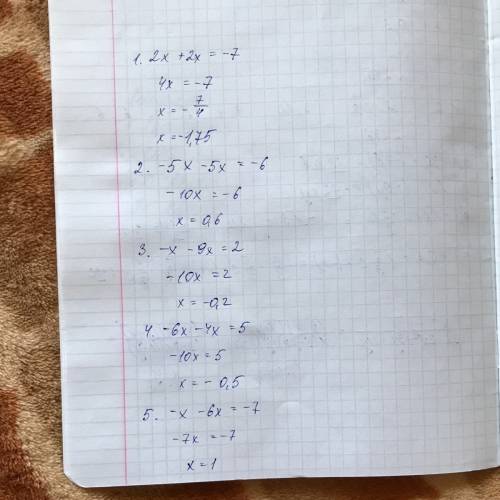 1. 2x + 2x = -7
4x = -7
x = - 7/4
x = -1,75
2. -5x -5x = -6
-10x = -6
x = 0,6
3. -x - 9x = 2
-10x = 2
x = -0,2
4. -6x - 4x = 5
-10x = 5
x = - 0,5
5. -x - 6x = -7
-7x = -7
x = 1